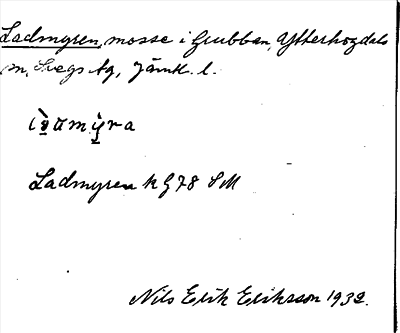 Ladmyren, mosse i Grubban, Ytterhogdals
sn, Svegs tg, Jämtl. l.
Ladmyren k G 78 SM
Nils Erik Eriksson 1932.